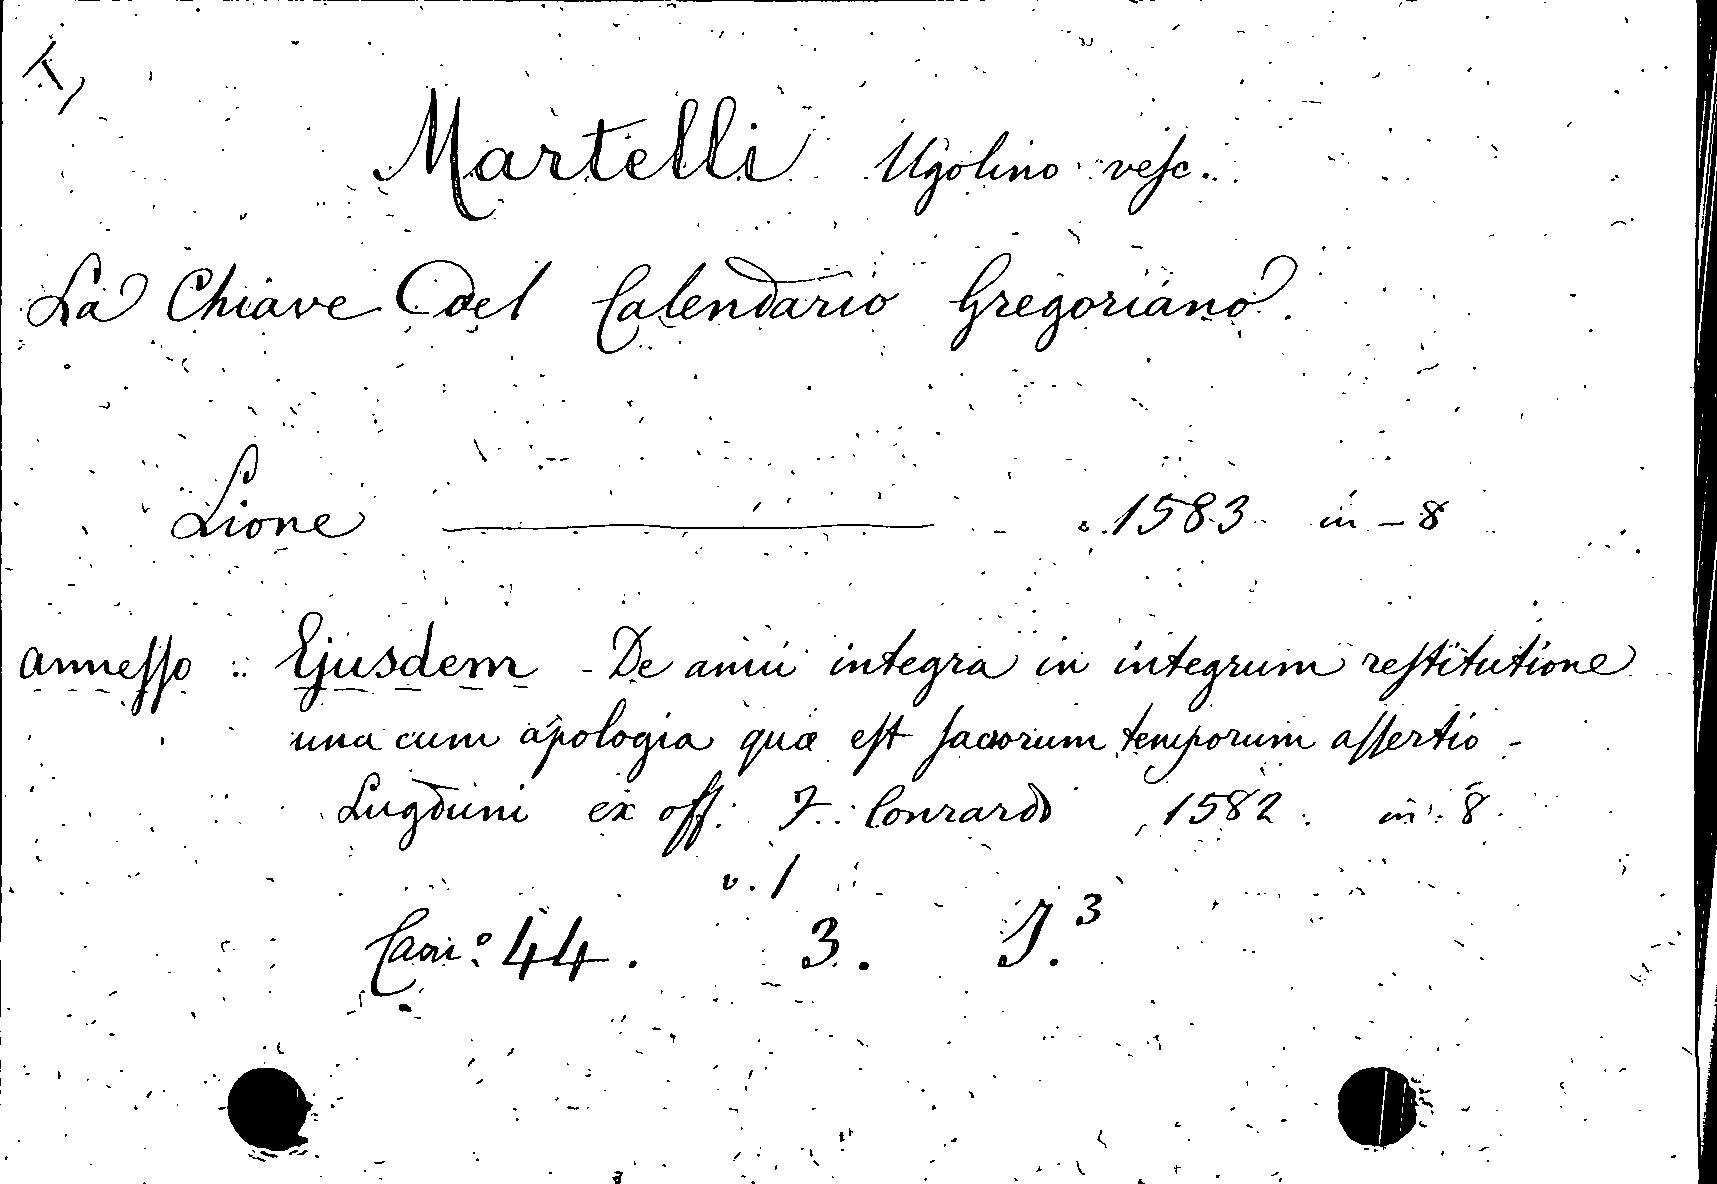 T,
Martelli Ugolino vesc.
La Chiave del Calendario Gregoriano.
Lione — 1583 in-8
annesso: Ejusdem - De anni integra in integrum restitutione
una cum apologia quæ est sacrorum temporum assertio -
Lugduni ex off. J. Conrardi 1582. in 8.
v. 1
Cam.º 44. 3. J.³